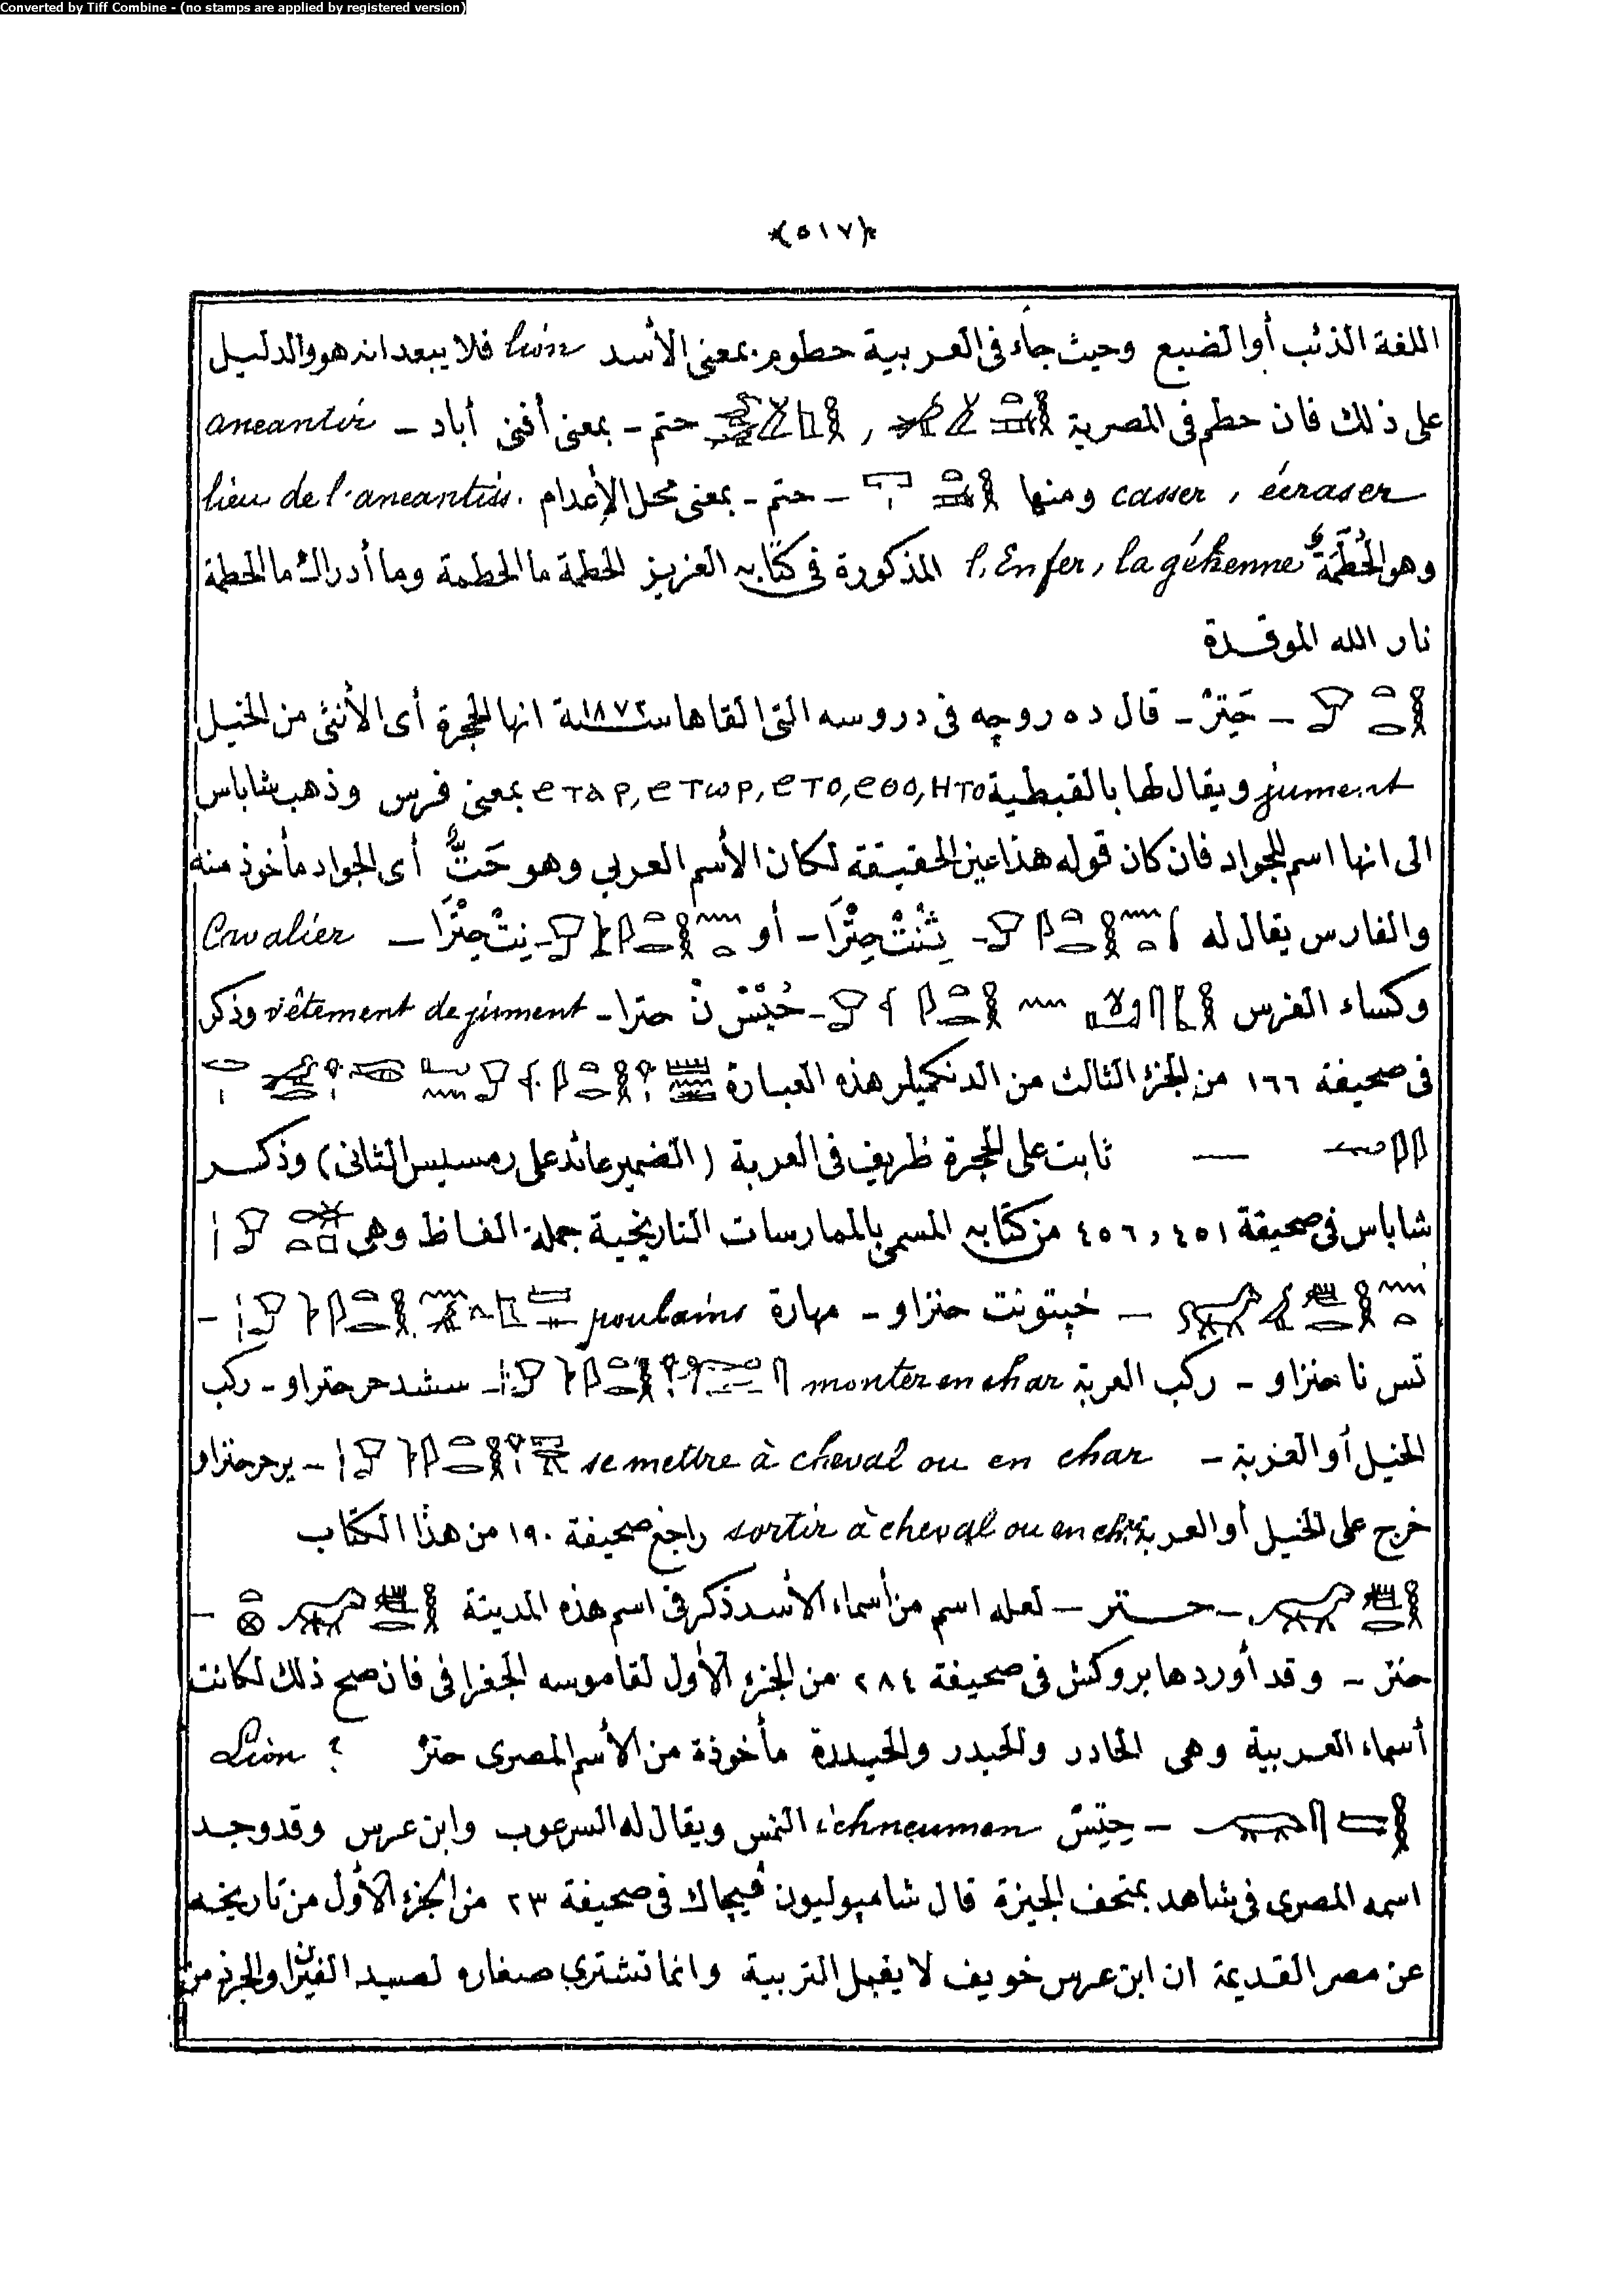 Converted by Tiff Combine - (no stamps are applied by registered version)
﴿٥١٧﴾
اللغة الذئب أو الضبع وحيث جاء في العربية حطوم بمعنى الأسد lion فلا يبعد انه هو والدليل
على ذلك فان حطم في المصرية , حتم – بمعنى أفنى أباد – aneantir
casser , écraser ومنها – حتم – بمعنى محل الإعدام lieu de l'aneantiss.
وهو الحُطَمَة l'Enfer, la géhenne المذكورة في كتابه العزيز الحطمة ما الحطمة وما أدراك ما الحطمة
نار الله الموقدة
– حَتِرْ – قال ده روجه في دروسه التي القاها سنة ١٨٧٢ انها الحجرة أى الأنثى من الخيل
jument ويقال لها بالقبطية ϩⲧⲟ, ⲉⲑⲟ, ⲉⲧⲟ, ⲉⲧⲱⲣ, ⲉⲧⲁⲣ بمعنى فرس وذهب شاباس
الى انها اسم للجواد فان كان قوله هذا عين الحقيقة لكان الأسم العربي وهو حَتٌّ أى الجواد مأخوذ منه
والفارس يقال له – ثِنْتْ حِتْرَا – أو – نِتْ حِتْرَا – Cavalier
وكساء الفرس – حُبْسْ نْ حترا – vêtement de jument وذكر
في صحيفة ١٦٦ من الجزء الثالث من الدنكميلر هذه العبارة
ثابت على الحجرة ظريف في العربة (الضمير عائد على رمسيس الثاني) وذكر
شاباس في صحيفة ٤٥١ , ٤٥٦ من كتابه المسمى بالممارسات التاريخية جملة الفاظ وهى
– خپتونت حتراو – مهارة poulains –
تس نا حتراو – ركب العربة monter en char – سشد حر حتراو – ركب
الخيل أو العربة – se mettre à cheval ou en char – پر حر حتراو
خرج على الخيل أو العربة sortir à cheval ou en char راجع صحيفة ١٩٠ من هذا الكتاب
– حتر – لعله اسم من أسماء الأسد ذكر في اسم هذه المدينة –
حتر – وقد أوردها بروكش في صحيفة ٢٨٤ من الجزء الأول لقاموسه الجغرافي فان صح ذلك لكانت
أسماء العربية وهى الحادر والحيدر والحيدرة مأخوذة من الأسم المصرى حتر Lion ?
– حِتِسْ ichneumon النمس ويقال له السرعوب وابن عرس وقد وجد
اسمه المصرى في شاهد بمتحف الجيزة قال شامپوليون فيجاك في صحيفة ٢٣ من الجزء الأول من تاريخه
عن مصر القديمة ان ابن عرس خويف لا يقبل التربية وانما تشترى صغاره لصيد الفيران والجرذ من